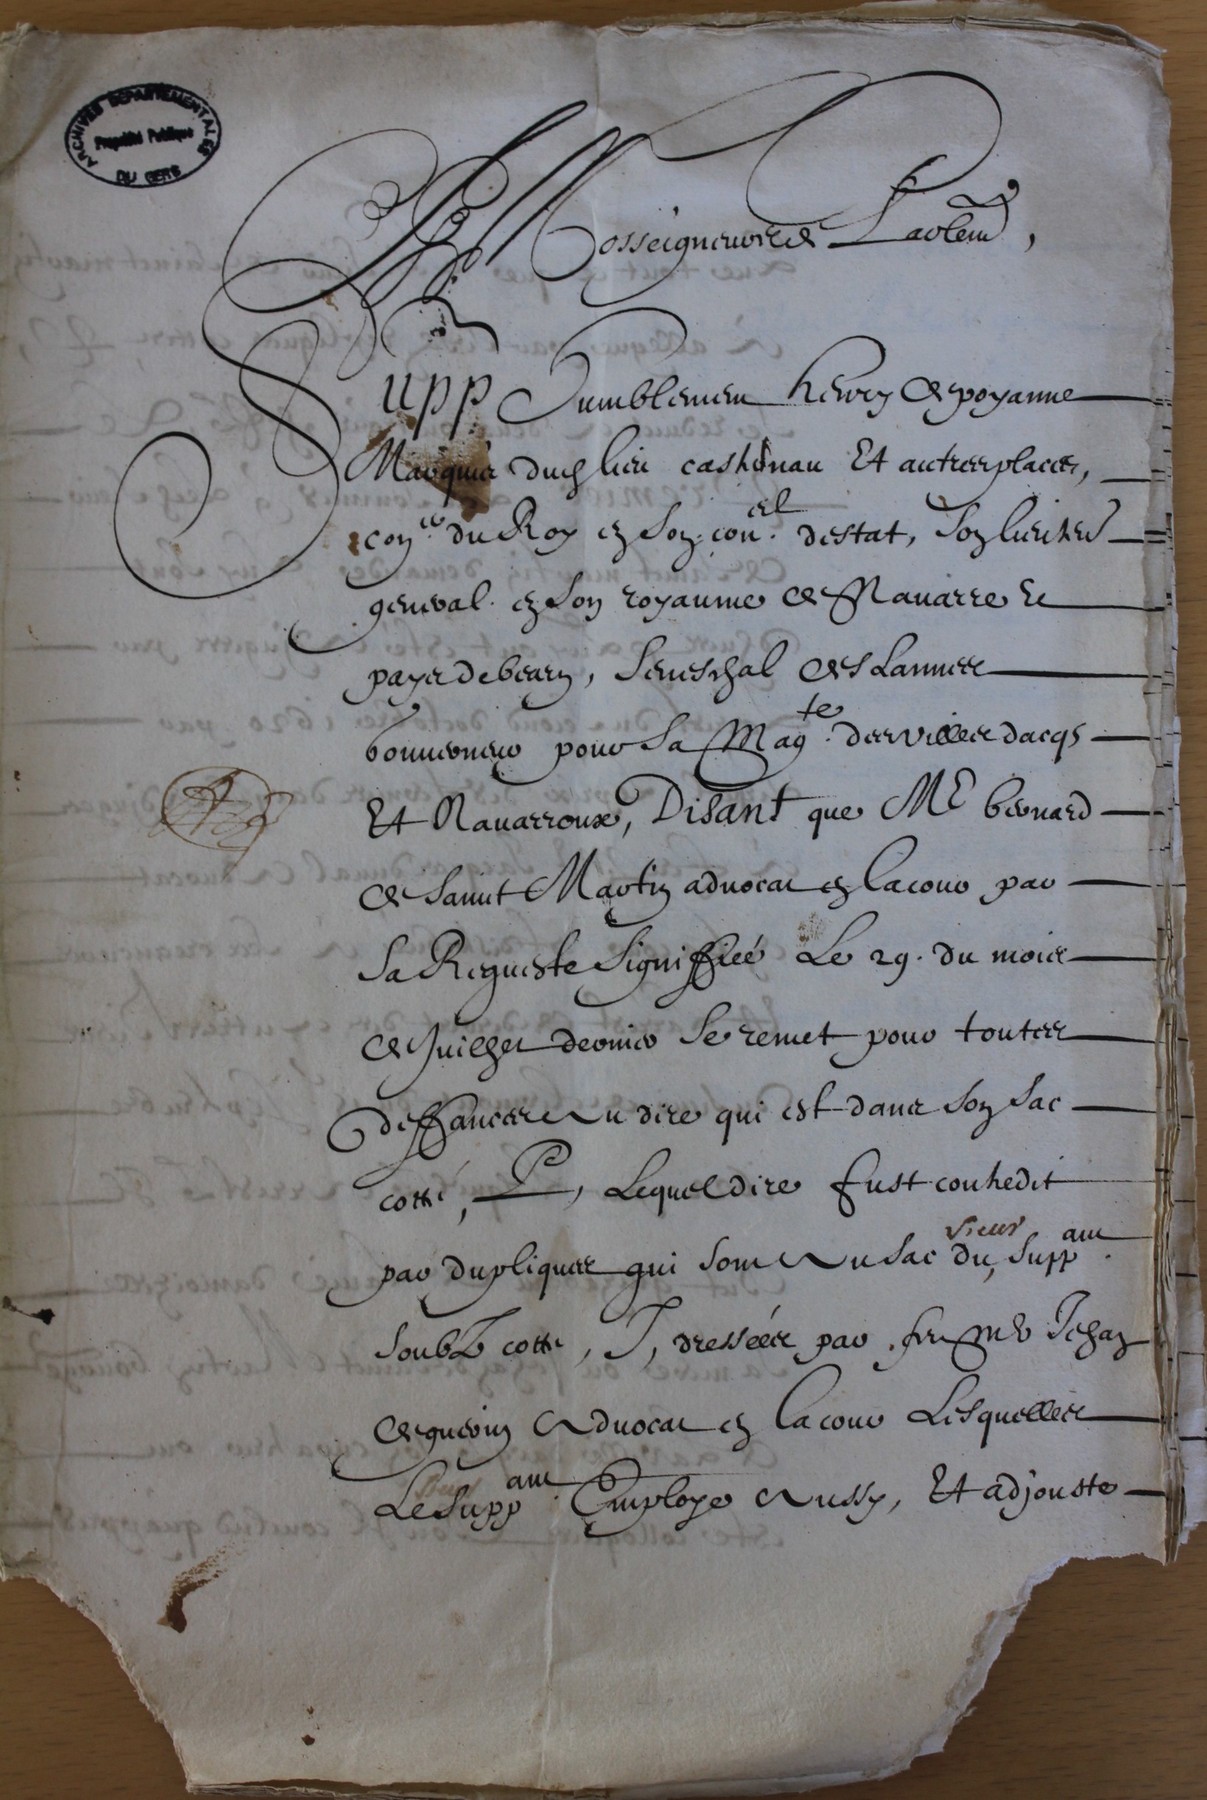 ARCHIVES DEPARTEMENTALES
Propriété Publique
DU GERS
A Nosseigneurs de Parlem̃,
Supp humblemen henry de poyanne
Marquis dud lieu castelnau Et autres places,
con.er du Roy en son con.el destat, son lieuten̄
general en son royaume de Navarre et
pays de bearn, seneschal des Lannes
gouverneur pour sa Mag.te des villes dacqs
Et Navarrenx, Disant que Me bernard
de saint Martin advocat en la cour par
sa Requeste signiffiée Le 29. du mois
de Juillet dernier se remet pour toutes
deffances au dire qui est dans son sac
cotté, P, Lequel dire fust contredit
par dupliques qui sont au sac du sieur supp.ant
soubz cotte, J, dressées par feu Me Jehan
de guerin advocat en la cour Lesquelles
Le supp.ant Employe aussy, Et adjouste